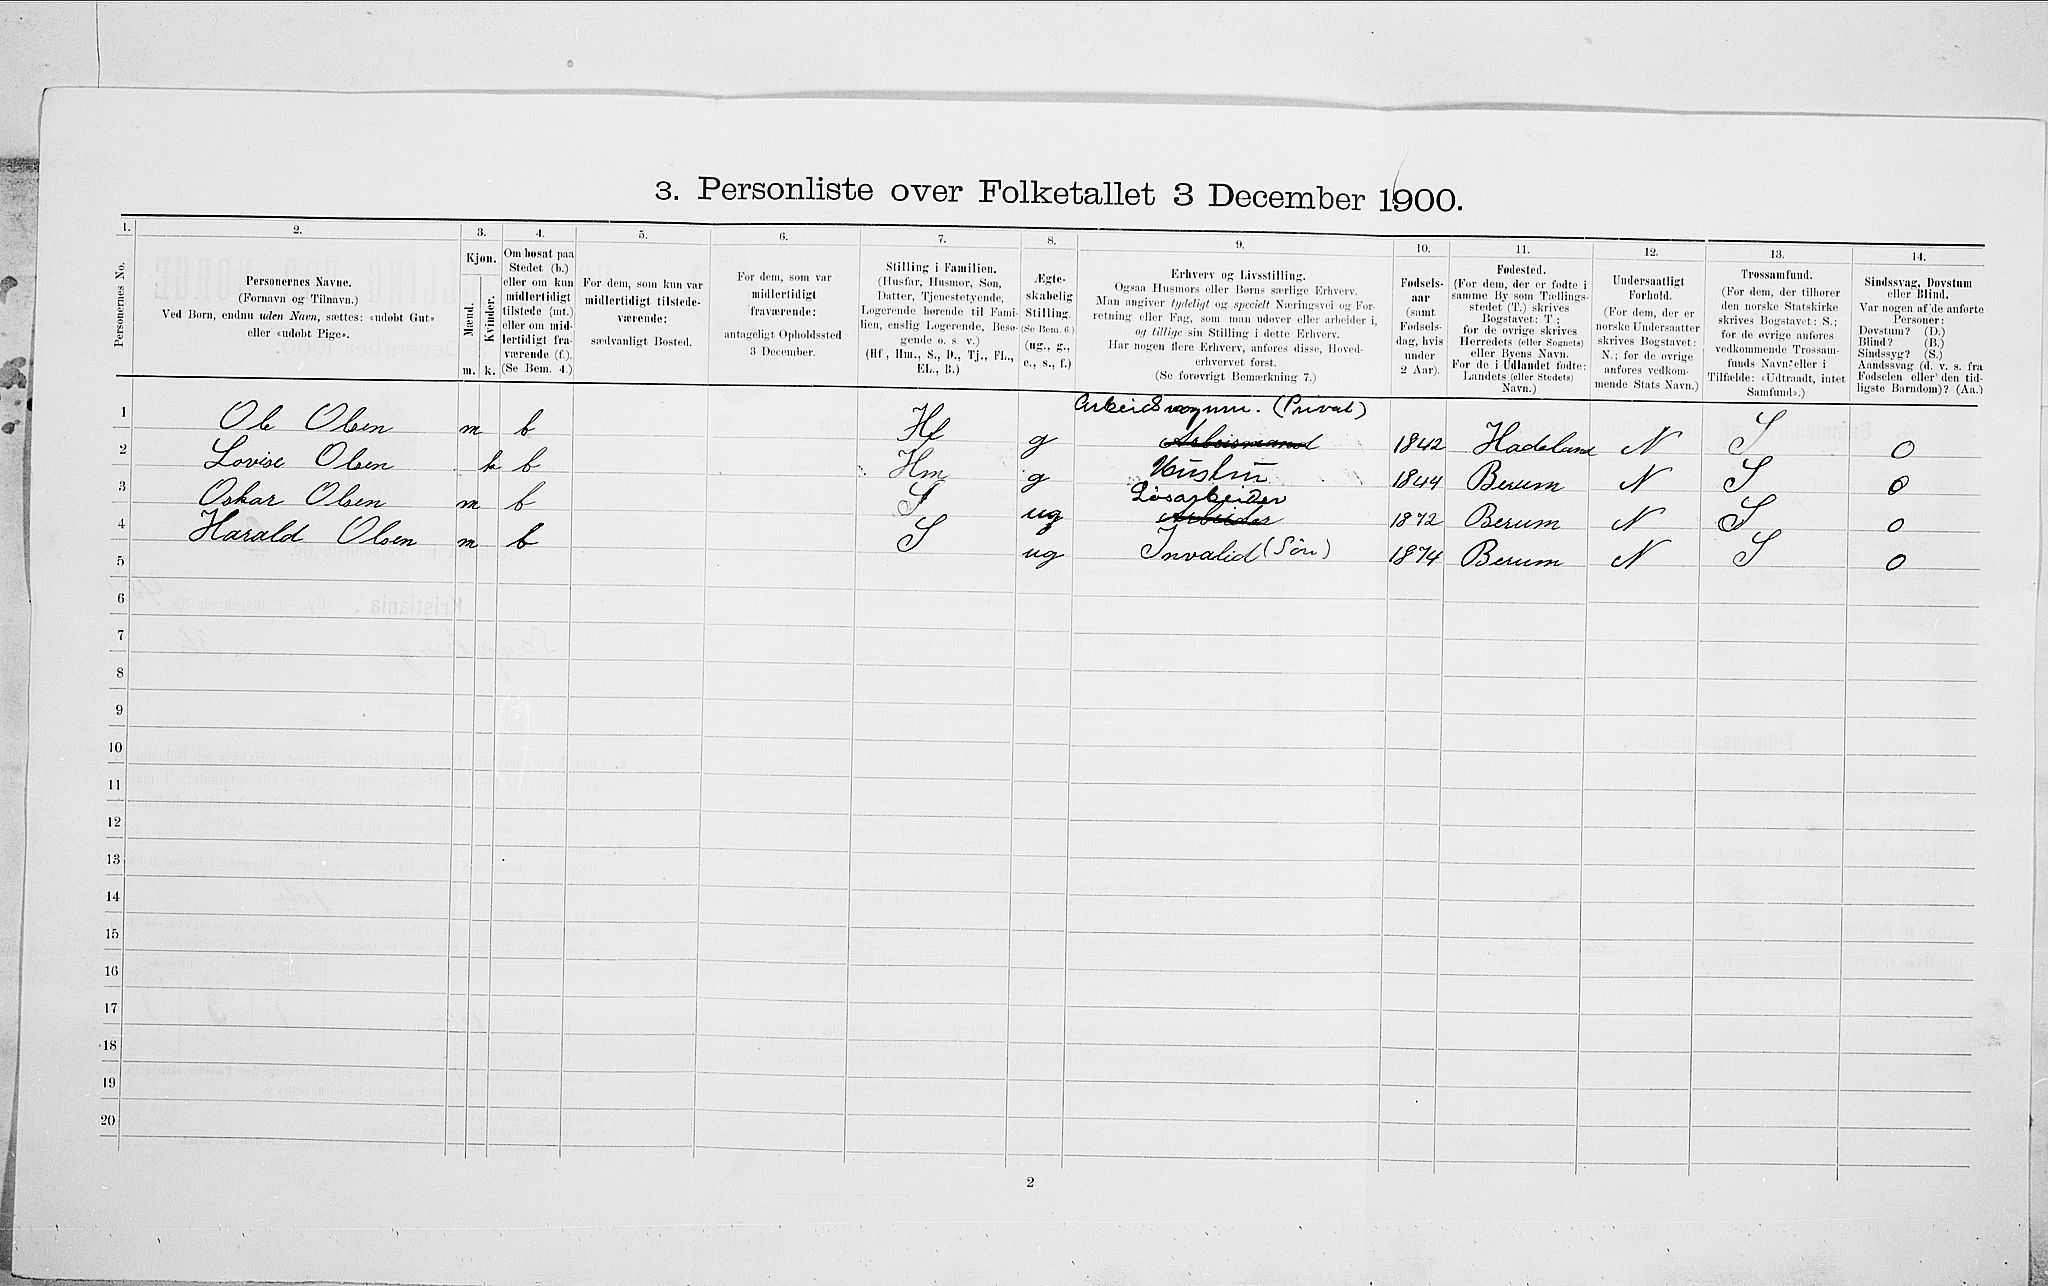 3. Personliste over Folketallet 3 December 1900.
1. 2. 3. 4. 5. 6. 7. 8. 9. 10. 11. 12. 13. 14.
Personernes No.
Personernes Navne.
(Fornavn og Tilnavn.)
Ved Børn, endnu uden Navn, sættes: «udøbt Gut»
eller «udøbt Pige».
Kjøn.
Mænd.
Kvinder.
m. k.
Om bosat paa
Stedet (b.)
eller om kun
midlertidigt
tilstede (mt.)
eller om mid-
lertidigt fra-
værende (f.).
(Se Bem. 4.)
For dem, som kun var
midlertidigt tilstede-
værende:
sædvanligt Bosted.
For dem, som var
midlertidigt
fraværende:
antageligt Opholdssted
3 December.
Stilling i Familien.
(Husfar, Husmor, Søn,
Datter, Tjenestetyende,
Logerende hørende til Fami-
lien, enslig Logerende, Besø-
gende o. s. v.)
(Hf, Hm., S., D., Tj., FL.,
EL., B.)
Ægte-
skabelig
Stilling.
(Se Bem. 6.)
(ug., g.,
e., s., f.)
Erhverv og Livsstilling.
Ogsaa Husmors eller Børns særlige Erhverv.
Man angiver tydeligt og specielt Næringsvei og For-
retning eller Fag, som man udøver eller arbeider i,
og tillige sin Stilling i dette Erhverv.
Har nogen flere Erhverv, anføres disse, Hoved-
erhvervet først.
(Se forøvrigt Bemærkning 7.)
Fødsels-
aar
(samt
Fødsels-
dag, hvis
under
2 Aar).
Fødested.
(For dem, der er fødte i
samme By som Tællings-
stedet (T.) skrives
Bogstavet: T.;
for de øvrige skrives
Herredets (eller Sognets)
eller Byens Navn.
For de i Udlandet fødte:
Landets (eller Stedets)
Navn.)
Undersaatligt
Forhold.
(For dem, der er
norske Undersaatter
skrives Bogstavet:
N.; for de øvrige
anføres vedkom-
mende Stats Navn.)
Trossamfund.
(For dem, der tilhører
den norske Statskirke
skrives Bogstavet: S.;
for de øvrige anføres
vedkommende Trossam-
funds Navn, eller i
Tilfælde: «Udtraadt, intet
Samfund».)
Sindssvag, Døvstum
eller Blind.
Var nogen af de anførte
Personer:
Døvstum? (D.)
Blind? (B.)
Sindssyg? (S.)
Aandssvag (d. v. s. fra
Fødselen eller den tid-
ligste Barndom)? (Aa.)
Arbeidsmann. (Privat)
1 Ole Olsen m b Hf g Arbeismand 1842 Hadeland N S 0
2 Lovise Olsen k b Hm g Hustru 1844 Berum N S 0
Løsarbeider
3 Oskar Olsen m b S ug Arbeider 1872 Berum N S 0
4 Harald Olsen m b S ug Invalid (Sön) 1874 Berum N S 0
5
6
7
8
9
10
11
12
13
14
15
16
17
18
19
20
2